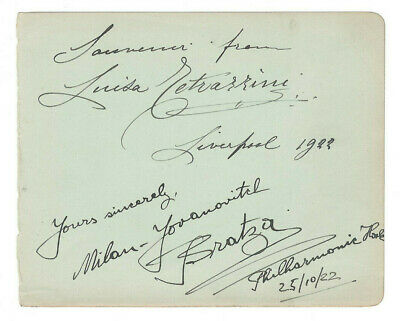 Souvenir from
Luisa Tetrazzini
Liverpool 1922
Yours sincerely,
Milan-Yovanovitch
Bratza
Philharmonic Hall
25/10/22